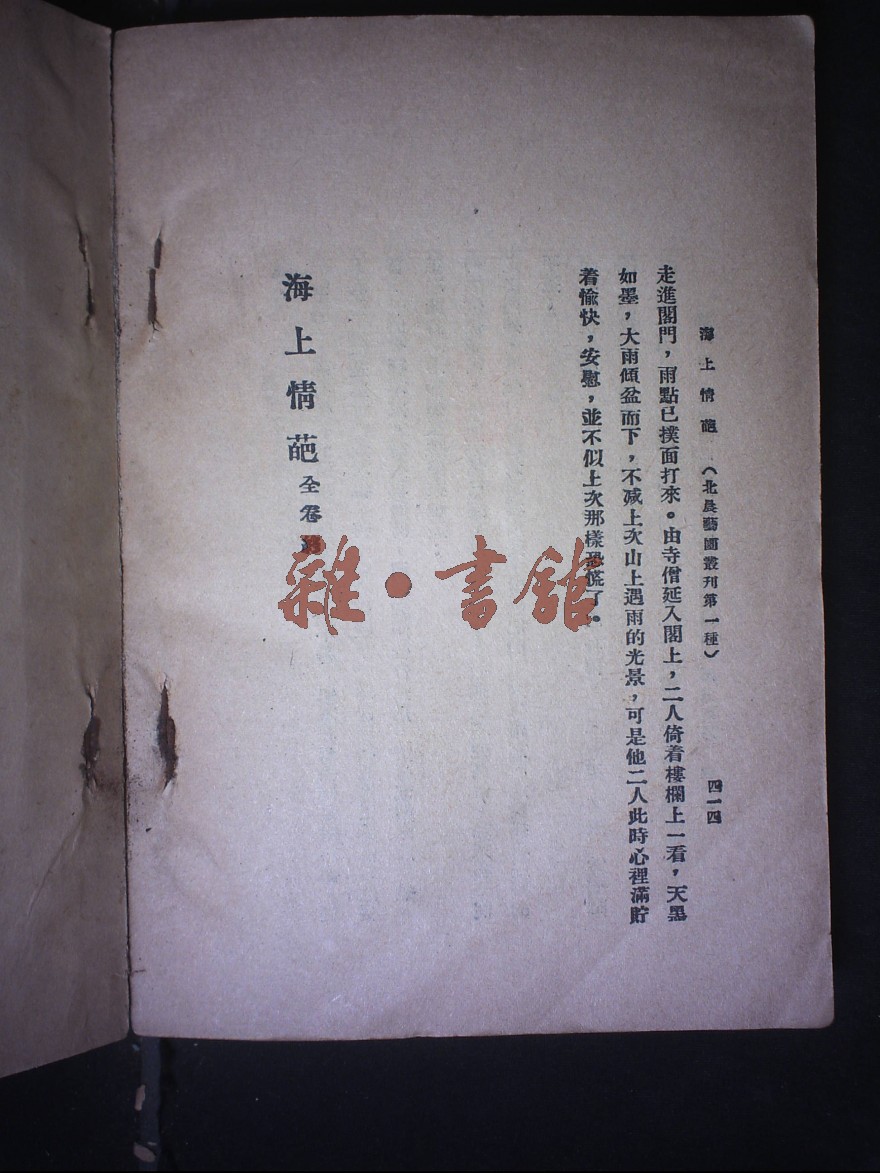 海上情葩　(北晨藝圃叢刊第一種)　四一四
走進閣門，雨點已撲面打來。由寺僧延入閣上，二人倚着樓欄上一看，天黑
如墨，大雨傾盆而下，不减上次山上遇雨的光景，可是他二人此時心裡滿貯
着愉快，安慰，並不似上次那樣恐慌了。
海上情葩全卷終
雜·書館